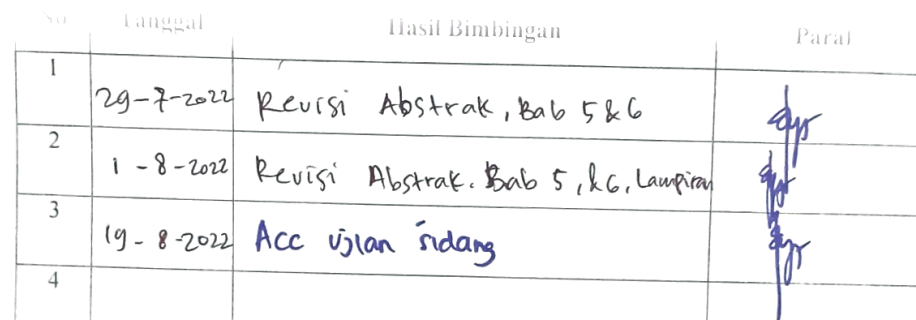 No Tanggal Hasil Bimbingan Paraf
1
29-7-2022 Revisi Abstrak, Bab 5 & 6
2
1-8-2022 Revisi Abstrak. Bab 5, & 6, Lampiran
3
19-8-2022 Acc Ujian sidang
4